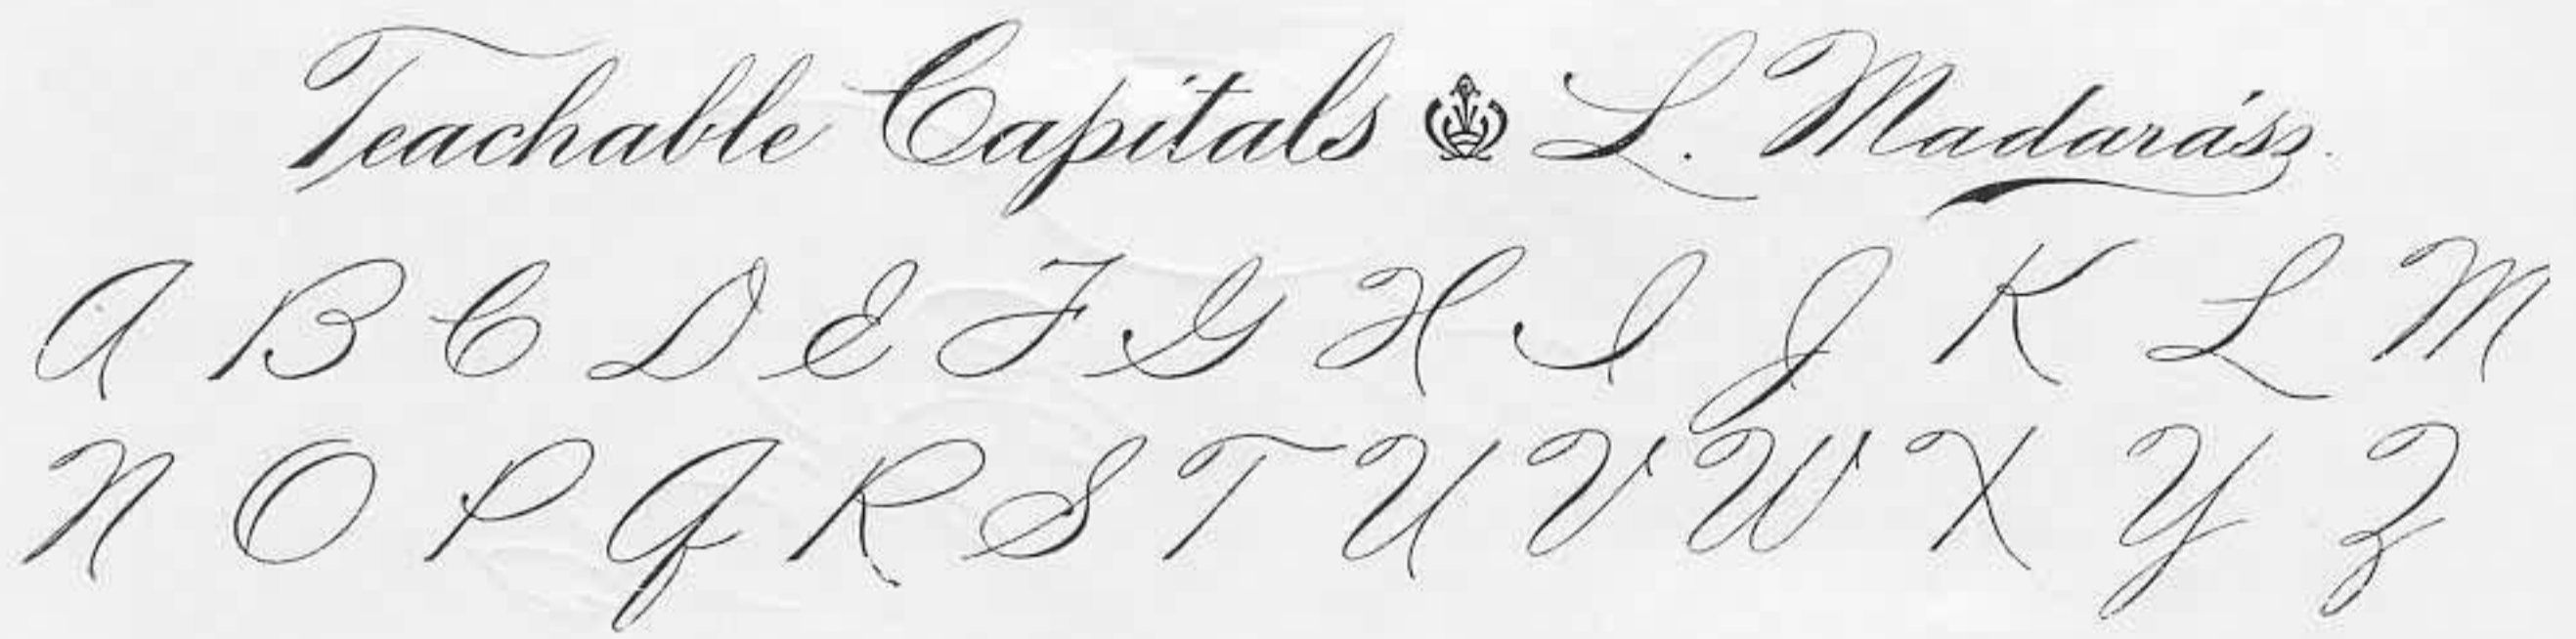 Teachable Capitals L. Madarász.
A B C D E F G H I J K L M
N O P Q R S T U V W X Y Z